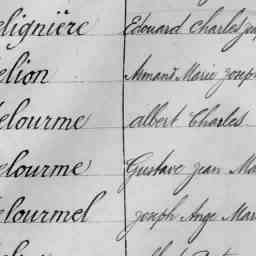 élignière Edouard Charles
elion Armand Marie Joseph
elourme Albert Charles
elourme Gustave Jean
elourmel Joseph Ange Mari